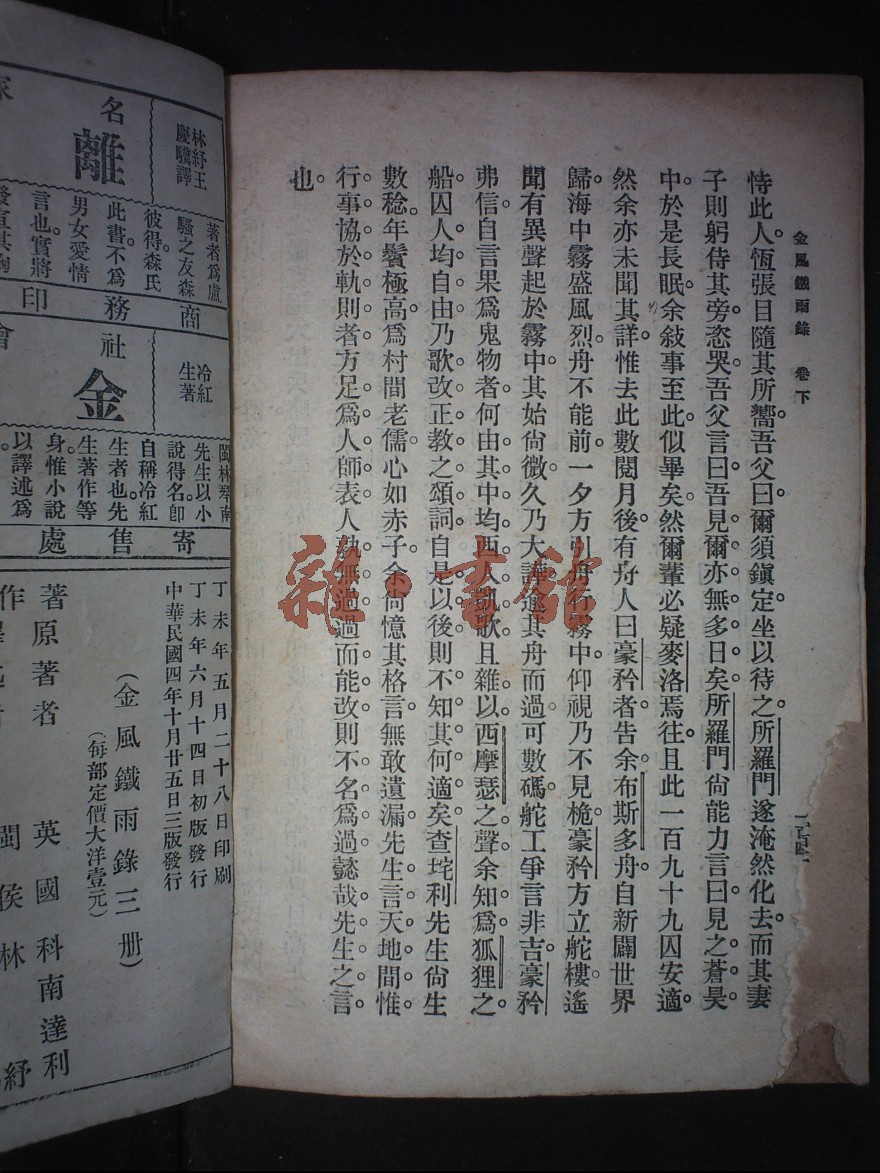 金風鐵雨錄 卷下
恃此人。恆張目隨其所嚮。吾父曰。爾須鎮定。坐以待之。所羅門遂淹然化去。而其妻
子則躬侍其旁恣哭。吾父言曰。吾見爾亦無多日矣。所羅門尙能力言曰。見之蒼昊
中。於是長眠。余敍事至此似畢矣。然爾輩必疑麥洛焉往。且此一百九十九囚安適。
然余亦未聞其詳。惟去此數閱月後。有舟人曰豪矜者。告余布斯多舟自新闢世界
歸。海中霧盛風烈。舟不能前。一夕方引舟行霧中。仰視乃不見桅。豪矜方立舵樓。遙
聞有異聲起於霧中。其始尙微。久乃大譁。逾其舟而過。可數碼。舵工爭言非吉。豪矜
弗信。自言果爲鬼物者。何由其中均西人凱歌。且雜以西摩瑟之聲。余知爲狐狸之
船。囚人均自由。乃歌改正教之頌詞。自是以後。則不知其何適矣。查垞利先生尙生
數稔。年鬢極高。爲村間老儒。心如赤子。余尙憶其格言。無敢遺漏。先生言天地間惟
行事協於軌則者。方足爲人師表。人孰無過。過而能改。則不名爲過。懿哉先生之言
也。
雜·書館
名
家
離
林紓王
慶驥譯
著者爲盧
騷之友森
彼得森氏
此書不爲
男女愛情
言也實將
商
務
印
社
會
金
冷紅
生著
閩林琴南
先生以小
說得名。卽
自稱冷紅
生者也。先
生著作等
身。惟小說
以譯述爲
寄售處
丁未年五月二十八日印刷
丁未年六月十四日初版發行
中華民國四年十月廿五日三版發行
(金風鐵雨錄三册)
(每部定價大洋壹元)
原著者 英國科南達利
著
閩侯林紓